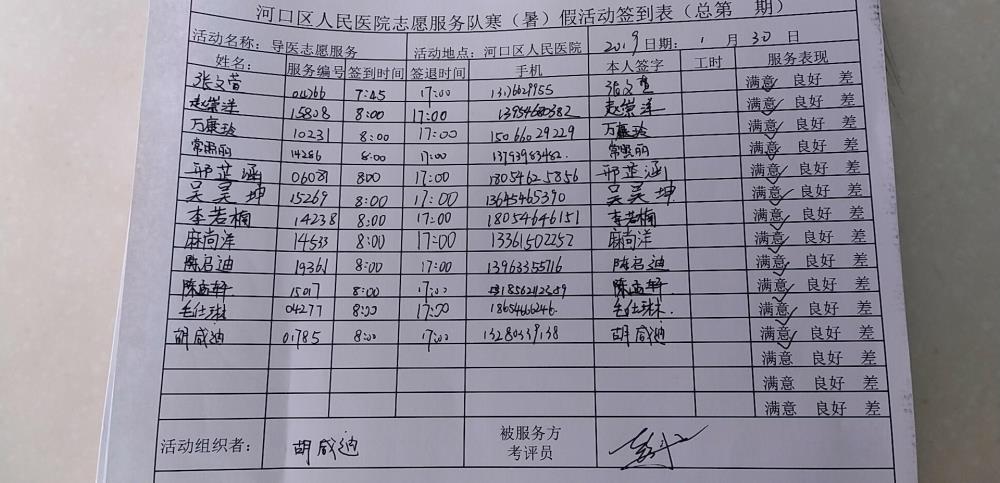 河口区人民医院志愿服务队寒（暑）假活动签到表（总第 期）
活动名称：导医志愿服务 活动地点：河口区人民医院 2019日期：1月30日
姓名： 服务编号 签到时间 签退时间 手机 本人签字 工时 服务表现
张文萱 04266 7:45 17:00 张文萱 满意✓ 良好 差
赵崇洋 15808 8:00 17:00 13954680382 赵崇洋 满意✓ 良好 差
万康玲 10231 8:00 17:00 15066029229 万康玲 满意✓ 良好 差
14286 8:00 17:00 13793983482. 满意✓ 良好 差
邢芷涵 06081 800 17:00 18054625856 邢芷涵 满意✓ 良好 差
吴昊坤 15269 8:00 17:00 13645465390 吴昊坤 满意✓ 良好 差
李若楠 14238 8:00 17:00 18054646151 李若楠 满意✓ 良好 差
麻尚洋 14533 8:00 17:00 13361502252 麻尚洋 满意✓ 良好 差
陈启迪 19361 8:00 17:00 13963355716 陈启迪 满意✓ 良好 差
15017 8:00 17:00 满意✓ 良好 差
毛仕琳 04277 8:00 17:00 18654666246. 毛仕琳. 满意✓ 良好 差
胡咸迪 01785 8:00 17:00 13280339138 胡咸迪 满意✓ 良好 差
满意 良好 差
满意 良好 差
满意 良好 差
活动组织者： 胡咸迪 被服务方
考评员